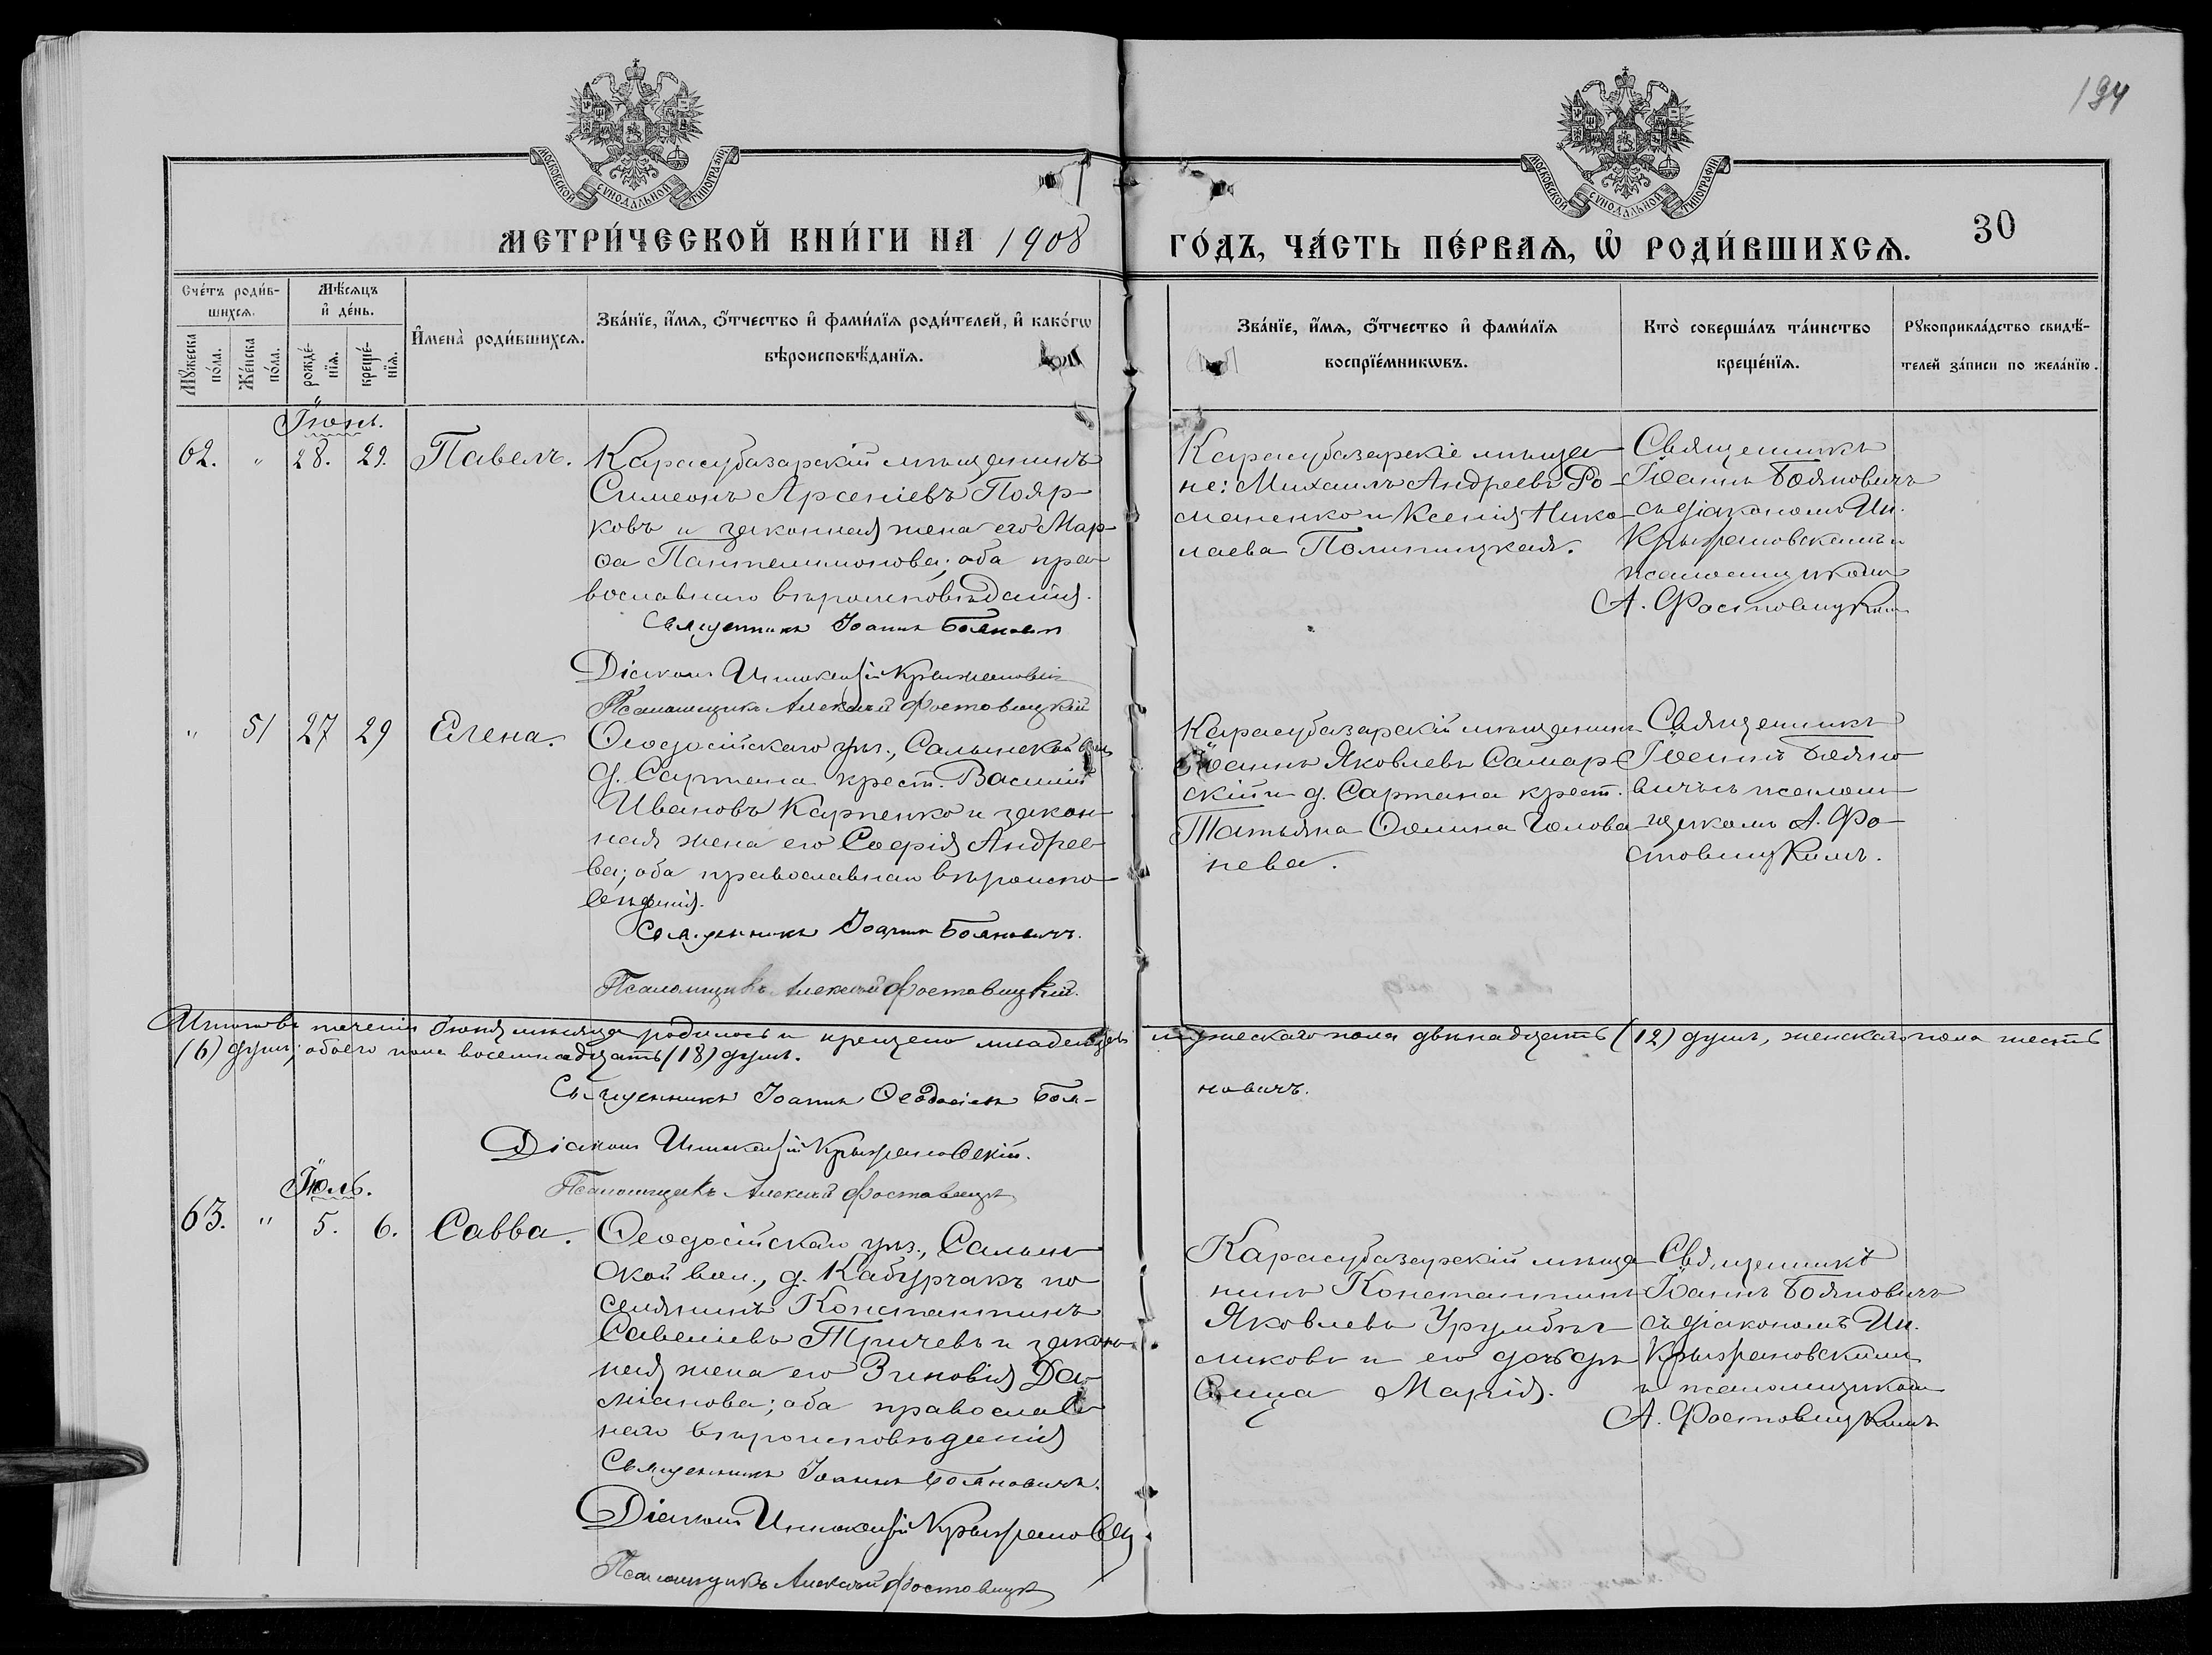 194
МОСКОВСКОЙ СѴНОДАЛЬНОЙ ТИПОГРАФІИ
МОСКОВСКОЙ СѴНОДАЛЬНОЙ ТИПОГРАФІИ
МЕТРИ́ЧЕСКОЙ КНИ́ГИ НА 1908
ГО́ДЪ, ЧА́СТЬ ПЕ́РВАѦ, Ѡ҆ РОДИ́ВШИХСѦ.
30
Сче́тъ роди́в-
шихсѧ.
Мѣ́сѧцъ
и҆ де́нь.
Мꙋ́жеска
по́ла.
Же́нска
по́ла.
рожде́-
нїѧ.
креще́-
нїѧ.
И҆мена̀ роди́вшихсѧ.
Зва́нїе, и҆́мѧ, ѻ҆́тчество и҆ фами́лїѧ роди́телей, и҆ како́гѡ
вѣроисповѣ́данїѧ.
Зва́нїе, и҆́мѧ, ѻ҆́тчество и҆ фами́лїѧ
воспрїе́мникѡвъ.
Кто̀ соверша́лъ та́инство
креще́нїѧ.
Рꙋкоприкла́дство свидѣ́-
телей за́писи по жела́нїю.
Іюнь.
62. " 28. 29. Павелъ.
Карасубазарскій мѣщанинъ
Симеонъ Арсеніевъ Пояр-
ковъ и законная жена его Мар-
ѳа Пантелимонова; оба пра-
вославнаго вѣроисповѣданія.
Священникъ Іоаннъ Бояновичъ
Діаконъ Иннокентій Крыжановскій
Псаломщикъ Алексій Фостовицкій
Карасубазарскіе мѣща-
не: Михаилъ Андреевъ Ро-
маненко и Ксенія Нико-
лаева Полницкая.
Священникъ
Іоаннъ Бояновичъ
съ діакономъ Ин.
Крыжановскимъ и
псаломщикомъ
А. Фостовицкимъ
" 51 27 29 Елена.
Ѳеодосійскаго уѣз., Салынской вол.
д. Сартана крест. Василій
Ивановъ Карпенко и закон-
ная жена его Софія Андрее-
ва; оба православнаго вѣроиспо-
вѣданія.
Священникъ Іоаннъ Бояновичъ.
Псаломщикъ Алексій Фостовицкій.
Карасубазарскій мѣщанинъ
Іоаннъ Яковлевъ Самар-
скій и д. Сартана крест.
Татьяна Ѳомина Голова-
нева.
Священникъ
Іоаннъ Бояно-
вичъ съ псалом-
щикомъ А. Фо-
стовицкимъ.
Итого въ теченіи Іюня мѣсяца родилось и крещено младенцевъ мужескаго пола двѣнадцать (12) душъ, женскаго пола шесть
(6) душъ; обоего пола восемнадцать (18) душъ.
Священникъ Іоаннъ Ѳеодосіевъ Боя-
новичъ.
Діаконъ Иннокентій Крыжановскій.
Псаломщикъ Алексій Фостовицкій
Іюль.
63. " 5. 6. Савва.
Ѳеодосійскаго уѣз., Салын-
ской вол., д. Кабурчакъ по-
селянинъ Константинъ
Савеліевъ Тричевъ и закон-
ная жена его Зиновія Да-
міанова; оба православ-
наго вѣроисповѣданія
Священникъ Іоаннъ Бояновичъ.
Діаконъ Иннокентій Крыжановскій
Псаломщикъ Алексій Фостовицкій
Карасубазарскій мѣща-
нинъ Константинъ
Яковлевъ
и его дочь
Марія.
Священникъ
Іоаннъ Бояновичъ
съ діакономъ Ин.
Крыжановскимъ
и псаломщикомъ
А. Фостовицкимъ